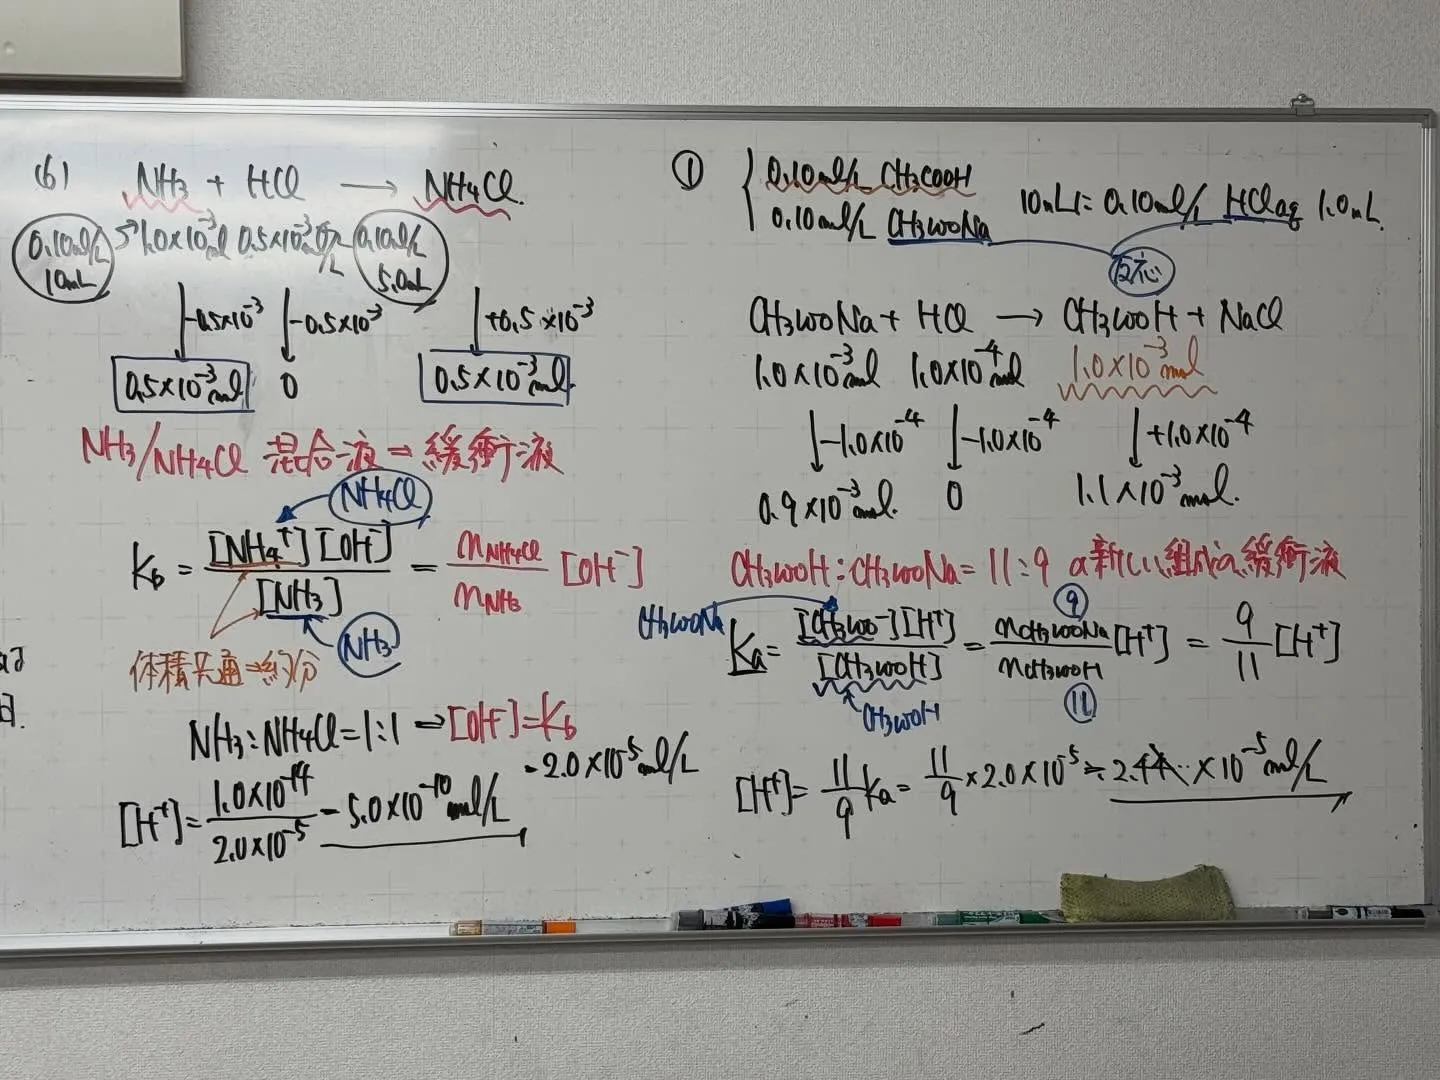 (6) NH3 + HCl → NH4Cl.
0.10mol/L 10mL 1.0×10⁻³mol 0.5×10⁻³ 0.10mol/L 5.0mL
-0.5×10⁻³ -0.5×10⁻³ +0.5×10⁻³
0.5×10⁻³mol 0 0.5×10⁻³mol.
NH3/NH4Cl 混合液⇒緩衝液
NH4Cl
Kb = [NH4⁺][OH⁻]/[NH3] = nNH4Cl/nNH3 [OH⁻]
NH3
体積共通⇒約分
NH3:NH4Cl=1:1 ⇒ [OH⁻]=Kb
=2.0×10⁻⁵mol/L
[H⁺]=1.0×10⁻¹⁴/2.0×10⁻⁵=5.0×10⁻¹⁰mol/L
① 0.10mol/L CH3COOH
0.10mol/L CH3COONa
10mLに0.10mol/L HClaq 1.0mL
反応
CH3COONa + HCl → CH3COOH + NaCl
1.0×10⁻³mol 1.0×10⁻⁴mol 1.0×10⁻³mol
-1.0×10⁻⁴ -1.0×10⁻⁴ +1.0×10⁻⁴
0.9×10⁻³mol. 0 1.1×10⁻³mol.
CH3COOH:CH3COONa=11:9 の新しい組成の緩衝液
CH3COONa
9
Ka=[CH3COO⁻][H⁺]/[CH3COOH]=nCH3COONa/nCH3COOH[H⁺]=9/11[H⁺]
11
CH3COOH
[H⁺]=11/9Ka=11/9×2.0×10⁻⁵≒2.44‥×10⁻⁵mol/L